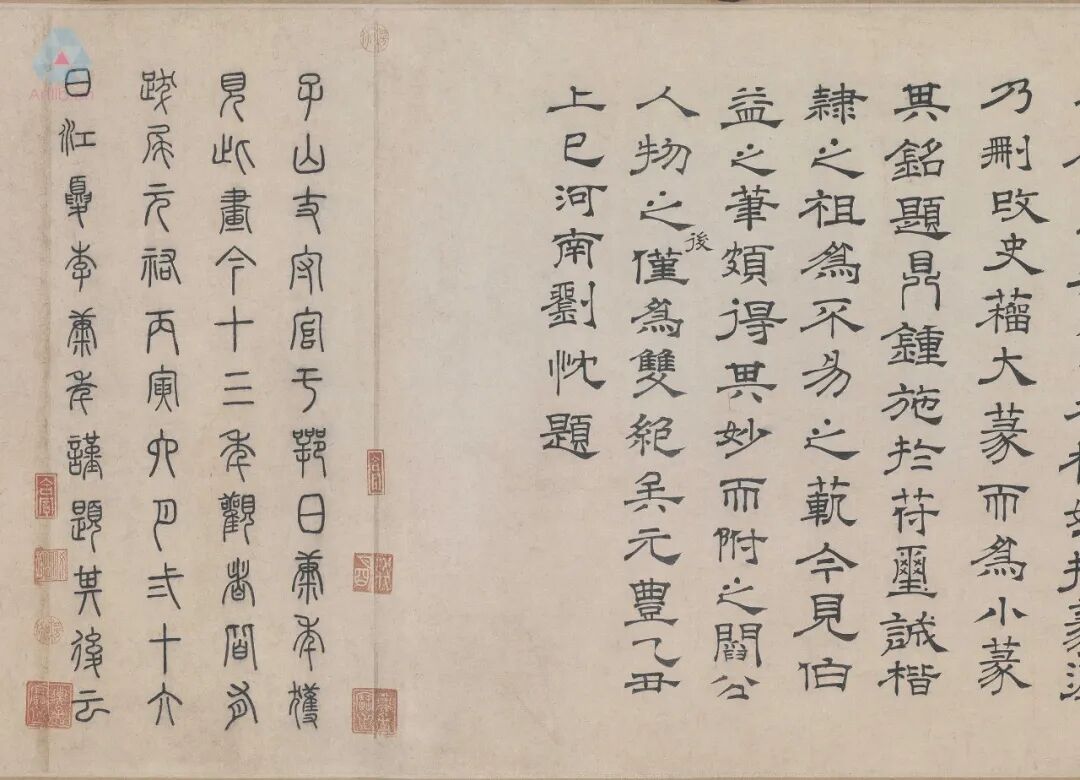 乃刪改史籒大篆而為小篆
其銘題鼎鍾施於苻璽誠楷
隸之祖為不易之範今見伯
益之筆頗得其妙而附之閻公
人物之後僅為雙絕矣元豐乙丑
上巳河南劉忱題
子山守官于鄂日康年獲
見此畫今十三年觀者有
跋尾元祐丙寅六月弍十六
日江夏李康年謹題其後云